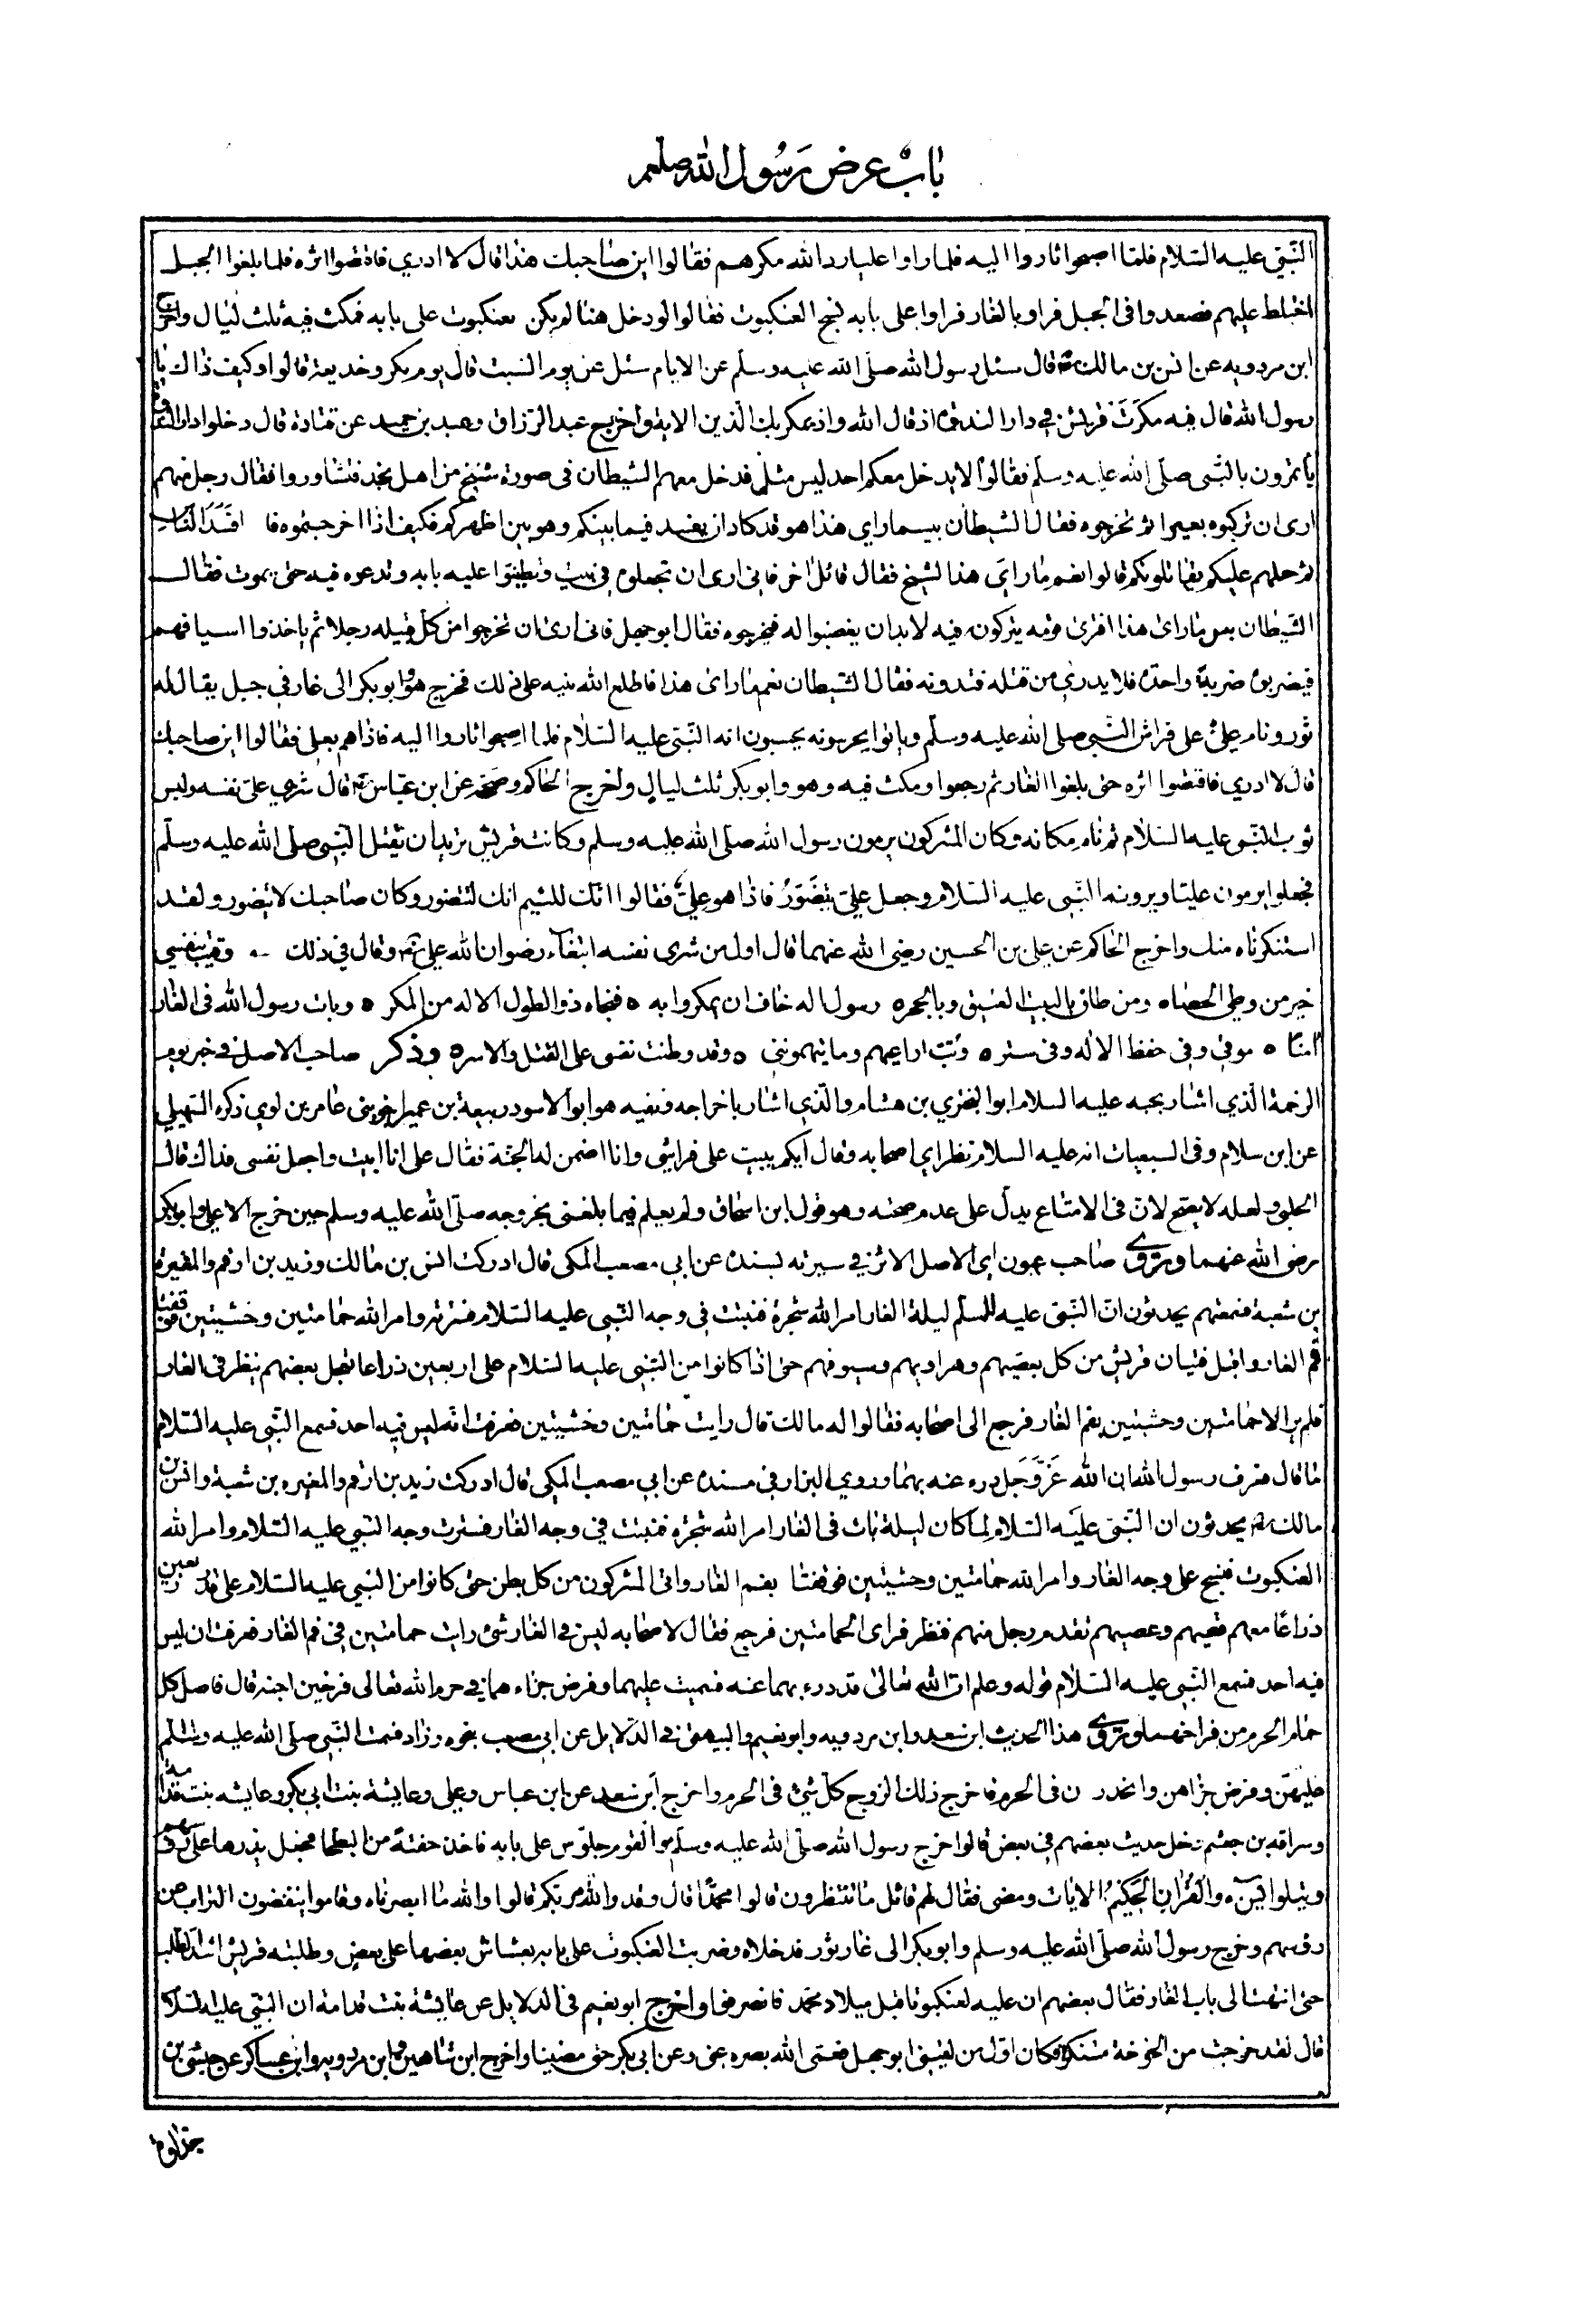 باب عرض رسول الله صلعم
النبي عليه السلام فلما اصبحوا ثاروا اليه فلما راوا عليا رد الله مكرهم فقالوا اين صاحبك هذا قال لا ادري فاقتصوا اثره فلما بلغوا الجبل
اختلط عليهم فصعدوا في الجبل فراو بالغار فراوا على بابه نسج العنكبوت فقالوا لو دخل هنا لم يكن بعنكبوت على بابه فمكث فيه ثلث ليال واخرج
ابن مردويه عن انس بن مالك رض قال سئل رسول الله صلى الله عليه وسلم عن الايام سئل عن يوم السبت قال يوم مكر وخديعة قالوا وكيف ذاك يا
رسول الله قال فيه مكرت قريش في دار الندوة اذ قال الله واذ يمكر بك الذين الاية واخرج عبد الرزاق وعبد بن حميد عن قتادة قال دخلوا دار الندوة
ياتمرون بالنبي صلى الله عليه وسلم فقالوا لا يدخل معكم احد ليس مثلكم فدخل معهم الشيطان في صورة شيخ من اهل نجد فتشاوروا فقال رجل منهم
ارى ان تركبوه بعيرا ثم تخرجوه فقال الشيطان بيسما راي هذا هو قد كاد ان يفسد فيما بينكم وهو بين اظهركم فكيف اذا اخرجتموه فا افسد الناس
ثم حملهم عليكم يقاتلونكم قالوا نعم ما راي هذا لشيخ فقال قائل اخر فاني ارى ان تجعلوه في بيت وتطينوا عليه بابه وتدعوه فيه حتى يموت فقال
الشيطان بس ما راى هذا افترى قومه يتركونه فيه لا بد ان يغضبوا له فيخرجوه فقال ابو جهل فاني ارى ان تخرجوا من كل قبيله رجلا ثم ياخذوا اسيافهم
فيضربوه ضربة واحدة فلا يدري من قتله فتدونه فقال الشيطان نعم ما راى هذا فاطلع الله نبيه على ذلك فخرج هو وابو بكر الى غار في جبل يقال له
ثور ونام علي على فراش النبي صلى الله عليه وسلم وباتوا يحرسونه يحسبون انه النبي عليه السلام فلما اصبحوا ثاروا اليه فاذا هم بعلي فقالوا اين صاحبك
قال لا ادري فاقتصوا اثره حتى بلغوا الغار ثم رجعوا ومكث فيه وهو وابو بكر ثلث ليال واخرج الحاكم وصححه عن ابن عباس رض قال شرى علي نفسه ولبس
ثوب النبي عليه السلام ثم نام مكانه وكان المشركون يرمون رسول الله صلى الله عليه وسلم وكانت قريش تريد ان تقتل النبي صلى الله عليه وسلم
فجعلوا يرمون عليا ويرونه النبي عليه السلام وجعل علي يتضور فاذا هو علي فقالوا انك للئيم انك لتتضور وكان صاحبك لا يتضور ولقد
استنكرناه منك واخرج الحاكم عن علي بن الحسين رضي الله عنهما قال اول من شرى نفسه ابتغاء رضوان الله علي رض وقال في ذلك وقيت بنفسي
خير من وطي الحصاه ومن طاف بالبيت العتيق وبالحجره رسول اله خاف ان يمكروا به ه فنجاه ذو الطول الاله من المكر ه وبات رسول الله في الغار
امنا ه موقي وفي حفظ الاله وفي ستر ه وبت اراعيهم وما يتهمونني ه وقد وطنت نفسي على القتل والاسره وذكر صاحب الاصل في خبر يوم
الزحمة الذي اشار بحبسه عليه السلام ابو البختري بن هشام والذي اشار باخراجه ونفيه هو ابو الاسود ربيعة بن عمير اخو بني عامر بن لوي ذكره السهيلي
عن ابن سلام وفي السبعيات انه عليه السلام نظر الي اصحابه وقال ايكم يبيت على فراشي وانا اضمن له الجنة فقال علي انا ابيت واجعل نفسي فداك قال
الحلبي ولعله لا يصح لان في الامتاع يدل على عدم صحته وهو قول ابن اسحاق ولم يعلم فيما بلغني بخروجه صلى الله عليه وسلم حين خرج الا علي وابو بكر
رضي الله عنهما وروي صاحب عيون اي الاصل الاثر في سيرته بسنده عن ابي مصعب المكي قال ادركت انس بن مالك وزيد بن ارقم والمغيره
بن شعبة فسمعتهم يحدثون ان النبي عليه السلم ليلة الغار امر الله شجرة فنبتت في وجه النبي عليه السلام فسترته وامر الله حمامتين وحشيتين فوقفتا
فم الغار واقبل فتيان قريش من كل بعصيهم وهراويهم وسيوفهم حتى اذا كانوا من النبي عليه السلام على اربعين ذراعا تعجل بعضهم ينظر في الغار
فلم ير الا حمامتين وحشيتين بفم الغار فرجع الى اصحابه فقالوا له مالك قال رايت حمامتين وحشيتين فعرفت انه ليس فيه احد فسمع النبي عليه السلام
ما قال فعرف رسول الله ان الله عز وجل درء عنه بهما وروي البزار في مسنده عن ابي مصعب المكي قال ادركت زيد بن ارقم والمغيره بن شعبة وانس بن
مالك رض يحدثون ان النبي عليه السلام لما كان ليلة بات في الغار امر الله شجرة فنبتت في وجه الغار فسترت وجه النبي عليه السلام وامر الله
العنكبوت فنسج على وجه الغار وامر الله حمامتين وحشيتين فوقفتا بفم الغار واتى المشركون من كل بطن حتى كانوا من النبي عليه السلام على قدر اربعين
ذراعا معهم قسيهم وعصيهم تقدم رجل منهم فنظر فراى الحمامتين فرجع فقال لاصحابه ليس في الغار شئ رايت حمامتين في فم الغار فعرفت ان ليس
فيه احد فسمع النبي عليه السلام قوله وعلم ان الله تعالى قد درء بهما عنه فسمت عليهما وفرض جزاء هما في حرم الله تعالى فرخين اجنه قال فاصل كل
حمام الحرم من فراخهما وروي هذا الحديث ابن سعد وابن مردويه وابو نعيم والبيهقي في الدلايل عن ابي مصعب بنحوه وزاد فسمت النبي صلى الله عليه وسلم
عليهن وفرض جزاهن وانحدرن في الحرم فاخرج ذلك الزوج كل شئ في الحرم واخرج ابن سعد عن ابن عباس وعلي وعايشة بنت ابي بكر وعايشه بنت قدامه
وسراقه بن جعشم دخل حديث بعضهم في بعض قالوا خرج رسول الله صلى الله عليه وسلم والقوم جلوس على بابه فاخذ حفنة من البطحا فجعل يذرها على روسهم
ويتلوا يس ه والقران الحكيم الايات ومضى فقال لهم قائل ما تنتظرون قالوا محمدا قال وقد والله مر بكم قالوا والله ما ابصرناه وقاموا ينفضون التراب عن
روسهم وخرج رسول الله صلى الله عليه وسلم وابو بكر الى غار ثور فدخلاه وضربت العنكبوت على بابه بعشاش بعضها على بعض وطلبته قريش اشد الطلب
حتى انتهت الى باب الغار فقال بعضهم ان عليه لعنكبوتا قبل ميلاد محمد فانصرفوا واخرج ابو نعيم في الدلايل عن عايشة بنت قدامة ان النبي عليه السلام
قال لقد خرجت من الخوخة متنكرا فكان اول من لقيني ابو جهل فعمى الله بصره عني وعن ابي بكر حتى مضينا واخرج ابن شاهين وابن مردويه وابن عساكر عن حبشي بن